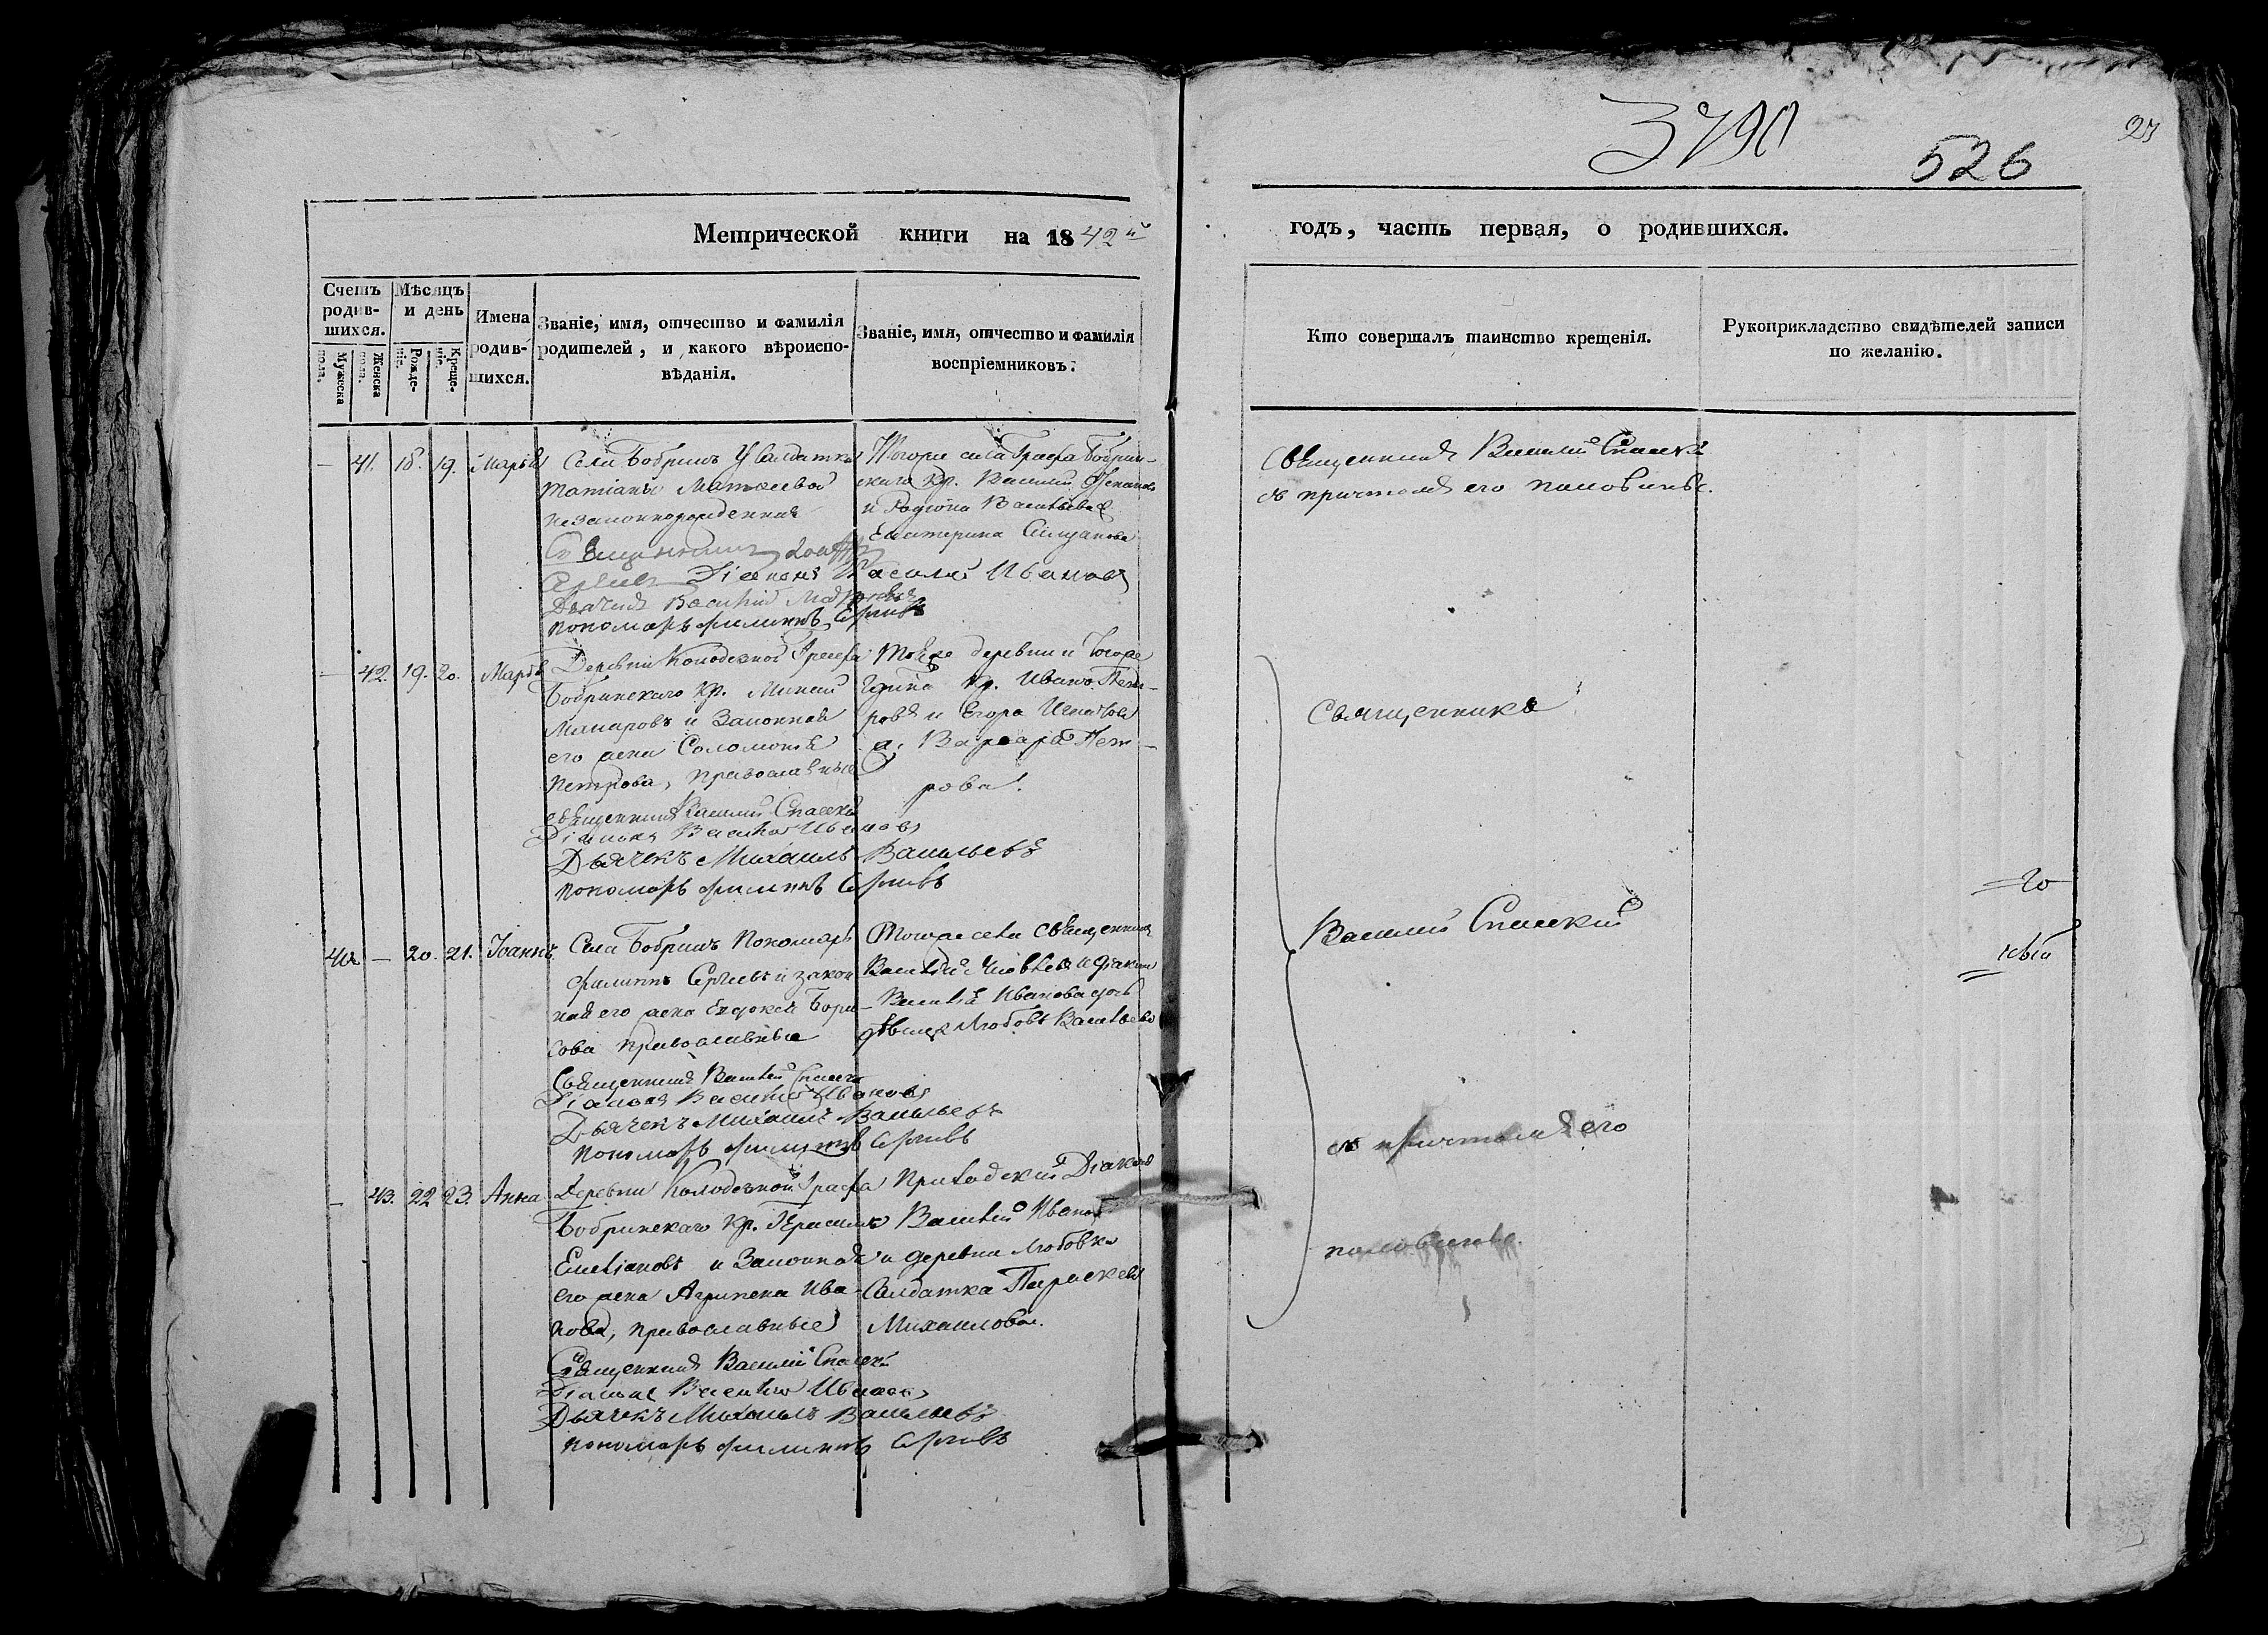 3790
526
27
Метрической книги на 1842й
годъ, часть первая, о родившихся.
Счетъ родив-шихся.
Мужеска пола.
Женска пола.
Мѣсяцъ и день
Рожде-нія.
Креще-нія.
Имена родив-шихся.
Званіе, имя, отчество и фамилія родителей, и какого вѣроиспо-вѣданія.
Званіе, имя, отчество и фамилія воспріемниковъ.
Кто совершалъ таинство крещенія.
Рукоприкладство свидѣтелей записи по желанію.
— 41. 18. 19. Марья
Села Бобрикъ у Салдатки
Татіаны Матвеевой
незаконнорожденная
Діаконъ Василій Ивановъ
Дьячекъ Василій
пономарь Филиппъ Сергіевъ
Тогоже села Графа Бобрин-
скаго кр. Василій
и Родіона Васильева
Екатерина
Священникъ Василій Спаскій
съ причтомъ его половинѣ.
— 42. 19. 20. Марѳа
Деревни Колодезной Графа
Бобринскаго кр.
Макаровъ и Законная
его жена Соломонія
Петрова, православные
священникъ Василій Спаскій
Діаконъ Василій Ивановъ
Дьячекъ Михаилъ Васильевъ
пономарь Филиппъ Сергіевъ
Тойже деревни и Тогоже
Графа кр. Иванъ Пет-
ровъ и Егора
ж. Варвара Пет-
рова.
Священникъ
40 — 20. 21. Іоаннъ
Села Бобрикъ Пономарь
Филиппъ Сергіевъ и закон
ная его жена Евдокія Бори-
сова православные
Священникъ Василій Спаскій
Діаконъ Василій Ивановъ
Дьячекъ Михаилъ Васильевъ
пономарь Филиппъ Сергіевъ
Тогоже села Священникъ
Василій и Діакона
Василія Иванова дочь
дѣвица Любовь Васильева
Василій Спаскій
20
— 43. 22 23. Анна
Деревни Колодезной Графа
Бобринскаго кр. Герасимъ
Емеліановъ и Законная
его жена Агрипена Ива-
нова, православные
Священникъ Василій Спаскій
Діаконъ Василій Ивановъ
Дьячекъ Михаилъ Васильевъ
пономарь Филиппъ Сергіевъ
Приходскій Діаконъ
Василій Ивановъ
и деревни Любовки
Салдатка Параскева
Михаилова.
съ причтомъ его
половинѣ.